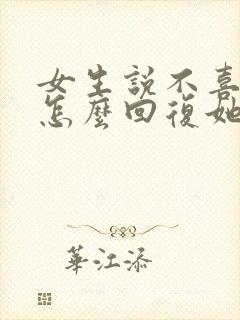 女生説不喜
怎麼回復她
華江添